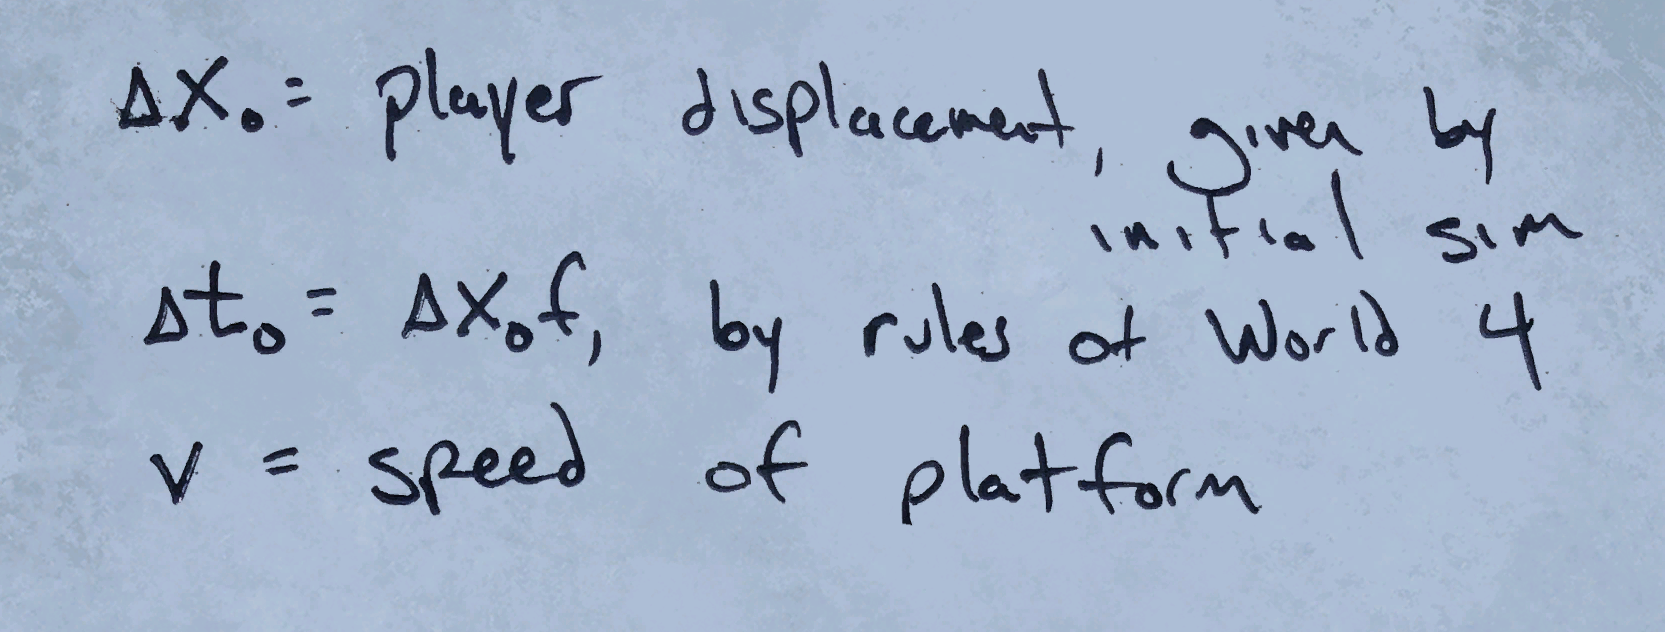 Δx₀ = player displacement, given by
initial sim
Δt₀ = Δx₀f, by rules of World 4
v = speed of platform